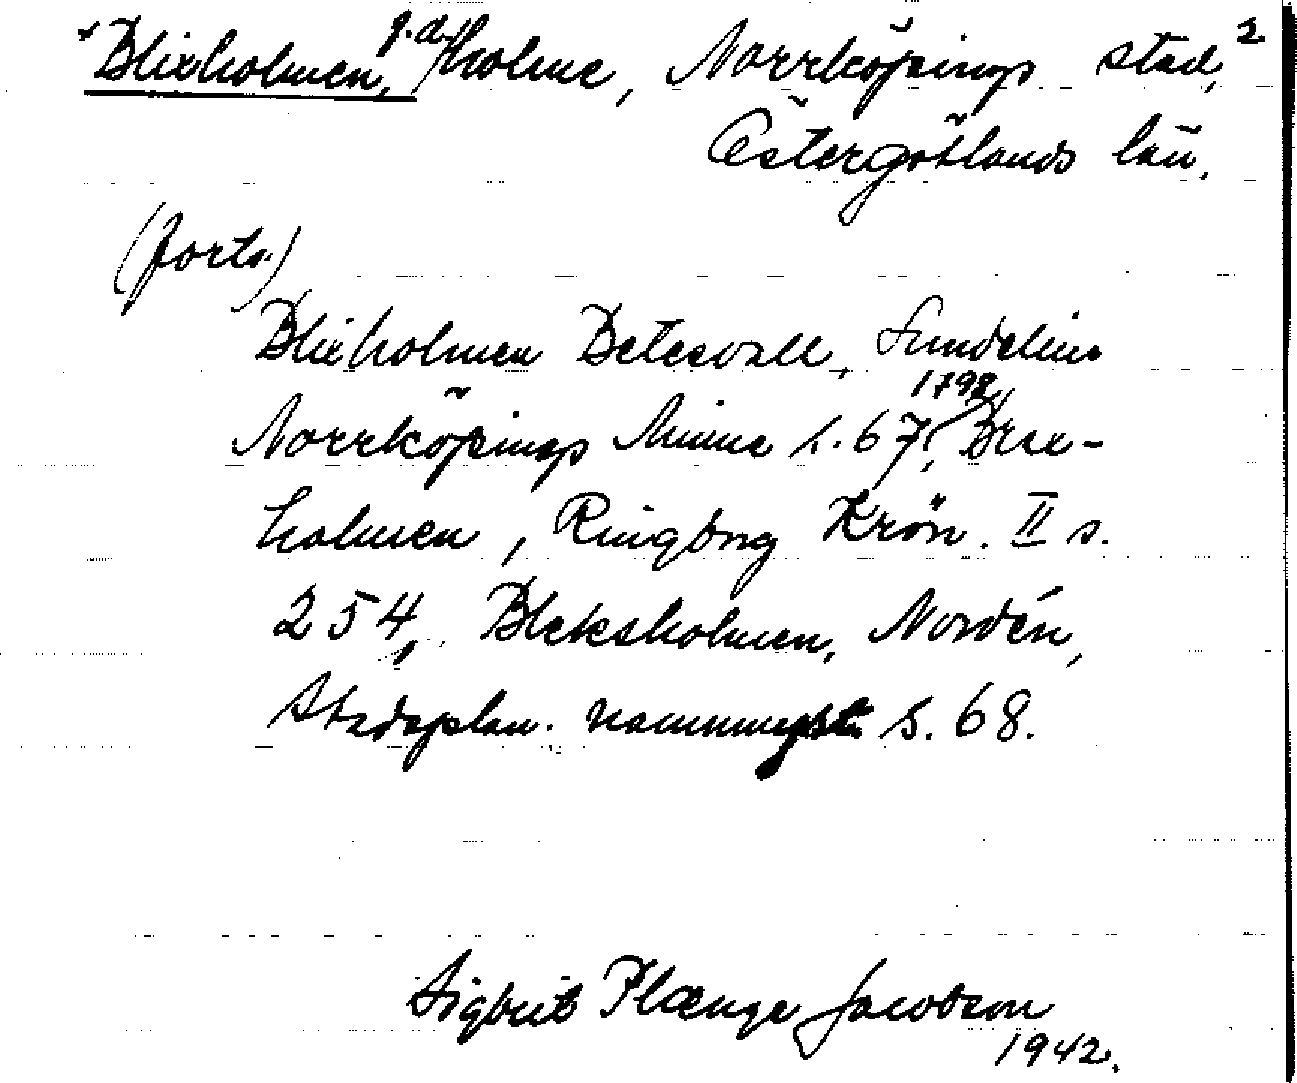 *Blixholmen, g.d. holme, Norrköpings stad, 2
Östergötlands län.
(forts.)
Blixholmen Betesvall, Sundelius
Norrköpings Minne s. 67, 1798, Brex-
holmen, Ringborg Krön. II s.
254, Bleksholmen, Nordén,
Stadsplan. namnmyst. S. 68.
Sigbrit Plænge Jacobson
1942.